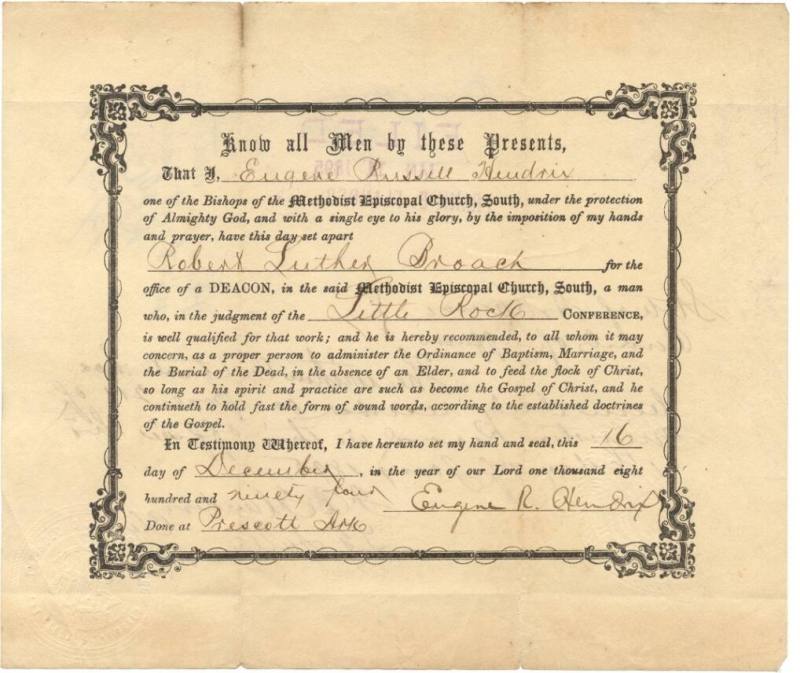 Know all Men by these Presents,
That I, Eugene Russell Hendrix
one of the Bishops of the Methodist Episcopal Church, South, under the protection
of Almighty God, and with a single eye to his glory, by the imposition of my hands
and prayer, have this day set apart
Robert Luther Broach for the
office of a DEACON, in the said Methodist Episcopal Church, South, a man
who, in the judgment of the Little Rock CONFERENCE,
is well qualified for that work; and he is hereby recommended, to all whom it may
concern, as a proper person to administer the Ordinance of Baptism, Marriage, and
the Burial of the Dead, in the absence of an Elder, and to feed the flock of Christ,
so long as his spirit and practice are such as become the Gospel of Christ, and he
continueth to hold fast the form of sound words, according to the established doctrines
of the Gospel.
In Testimony Whereof, I have hereunto set my hand and seal, this 16
day of December, in the year of our Lord one thousand eight
hundred and ninety four Eugene R. Hendrix
Done at Prescott Ark